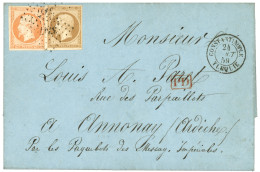 Monsieur
CONSTANTINOPLE
TURQUIE
Louis A.
PD
Rue des Parpaillets
a Annonay (Ardèche)
Par les Paquebots des Messag. Impériales.